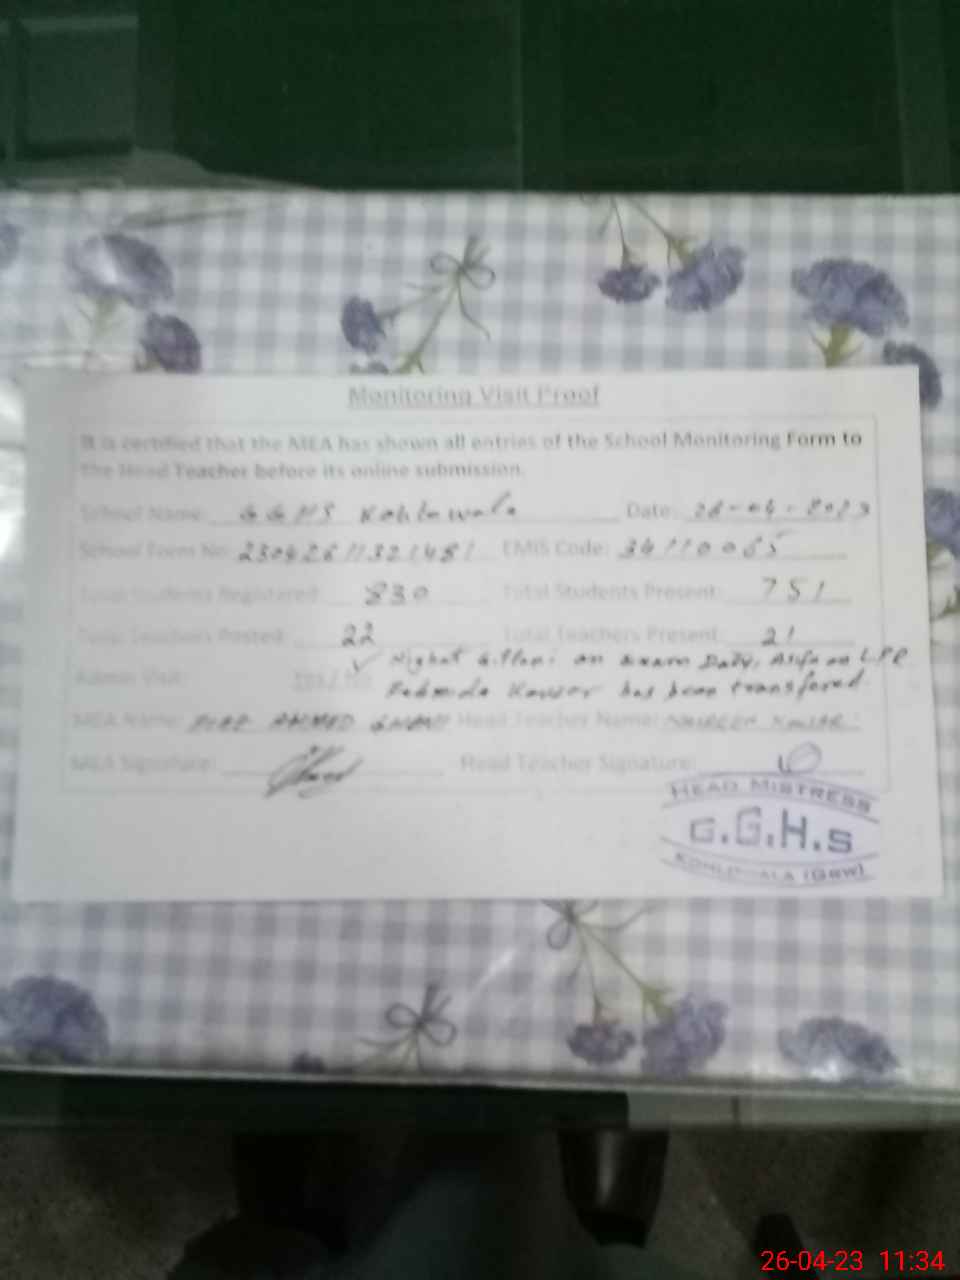 Monitoring Visit Proof
It is certified that the MEA has shown all entries of the School Monitoring Form to
the Head Teacher before its online submission.
School Name: GGHS Kohlowala Date: 26-04-2023
School Form No: 23042611321451 EMIS Code: 34110065
Total Students Registered: 830 Total Students Present: 751
Total Teachers Posted: 22 Total Teachers Present: 21
Nighat Gillani on Exam Duty, Asifa on LPR
Admin Visit: Yes / No Fehmida Kausar has been transfered.
MEA Name: AHMED Head Teacher Name: Kausar
MEA Signature: Head Teacher Signature:
HEAD MISTRESS
G.G.H.S
(GRW)
26-04-23 11:34